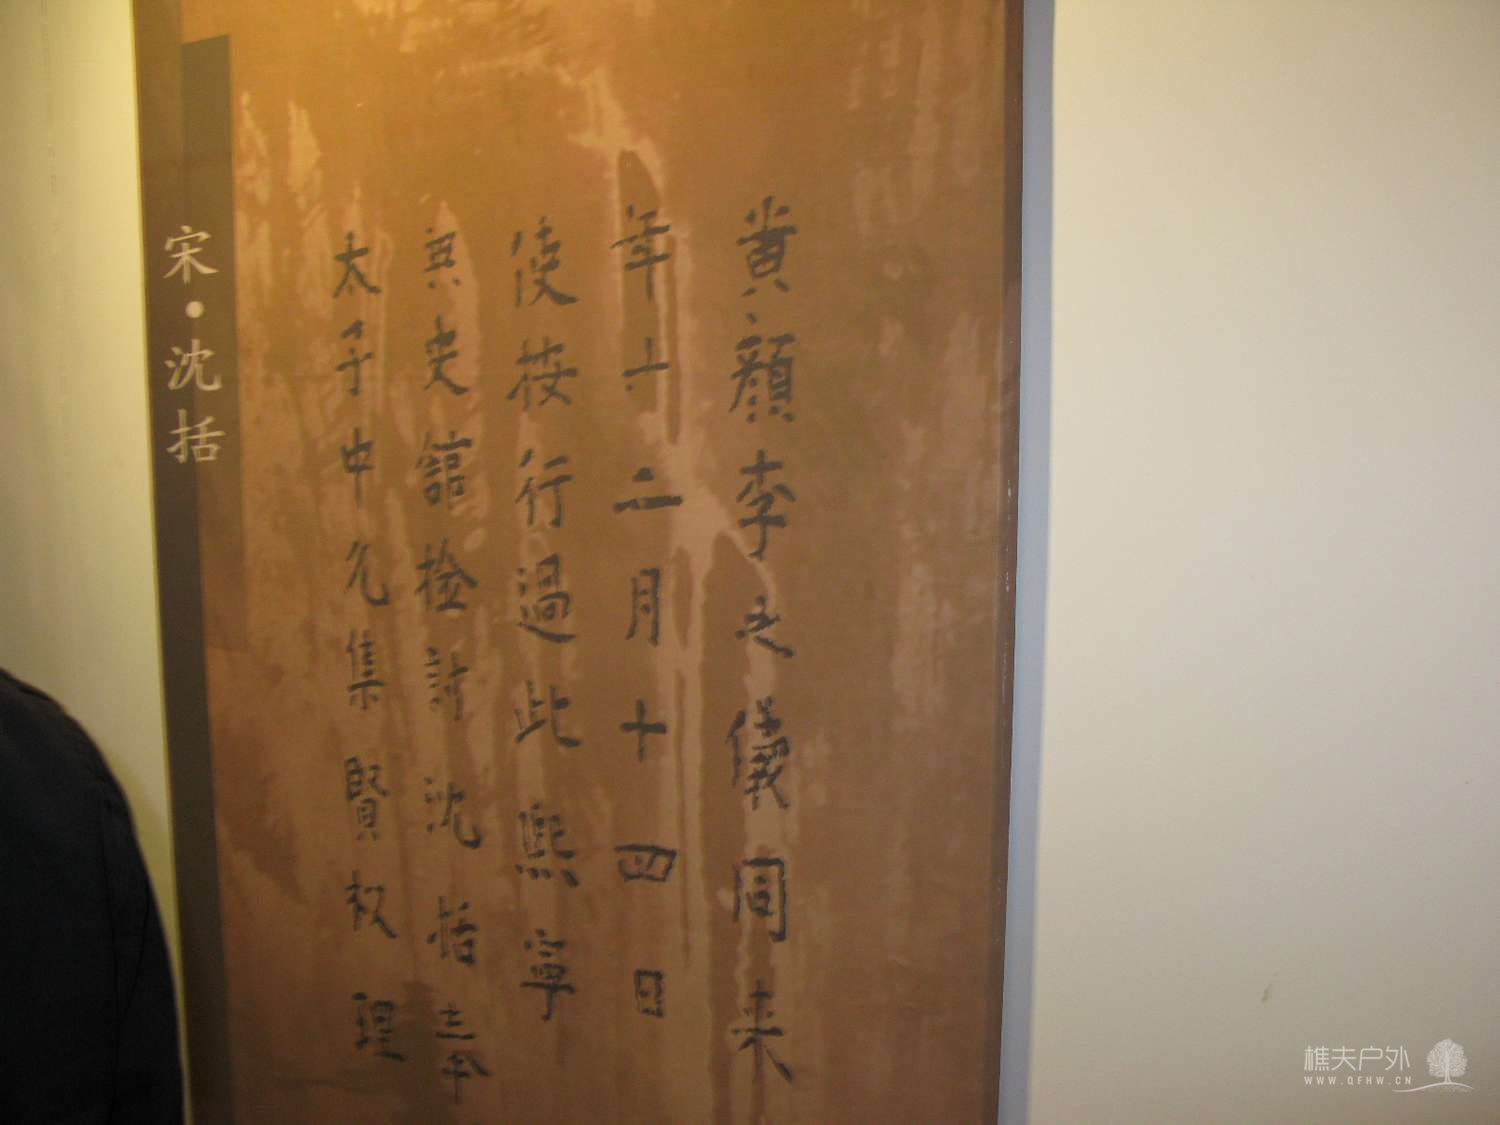 宋·沈括
太子中允集賢校理
兼史館檢討沈括奉
使按行過此熙寧
年十二月十四日
黄顔李之儀同来
樵夫户外
WWW.QFHW.CN